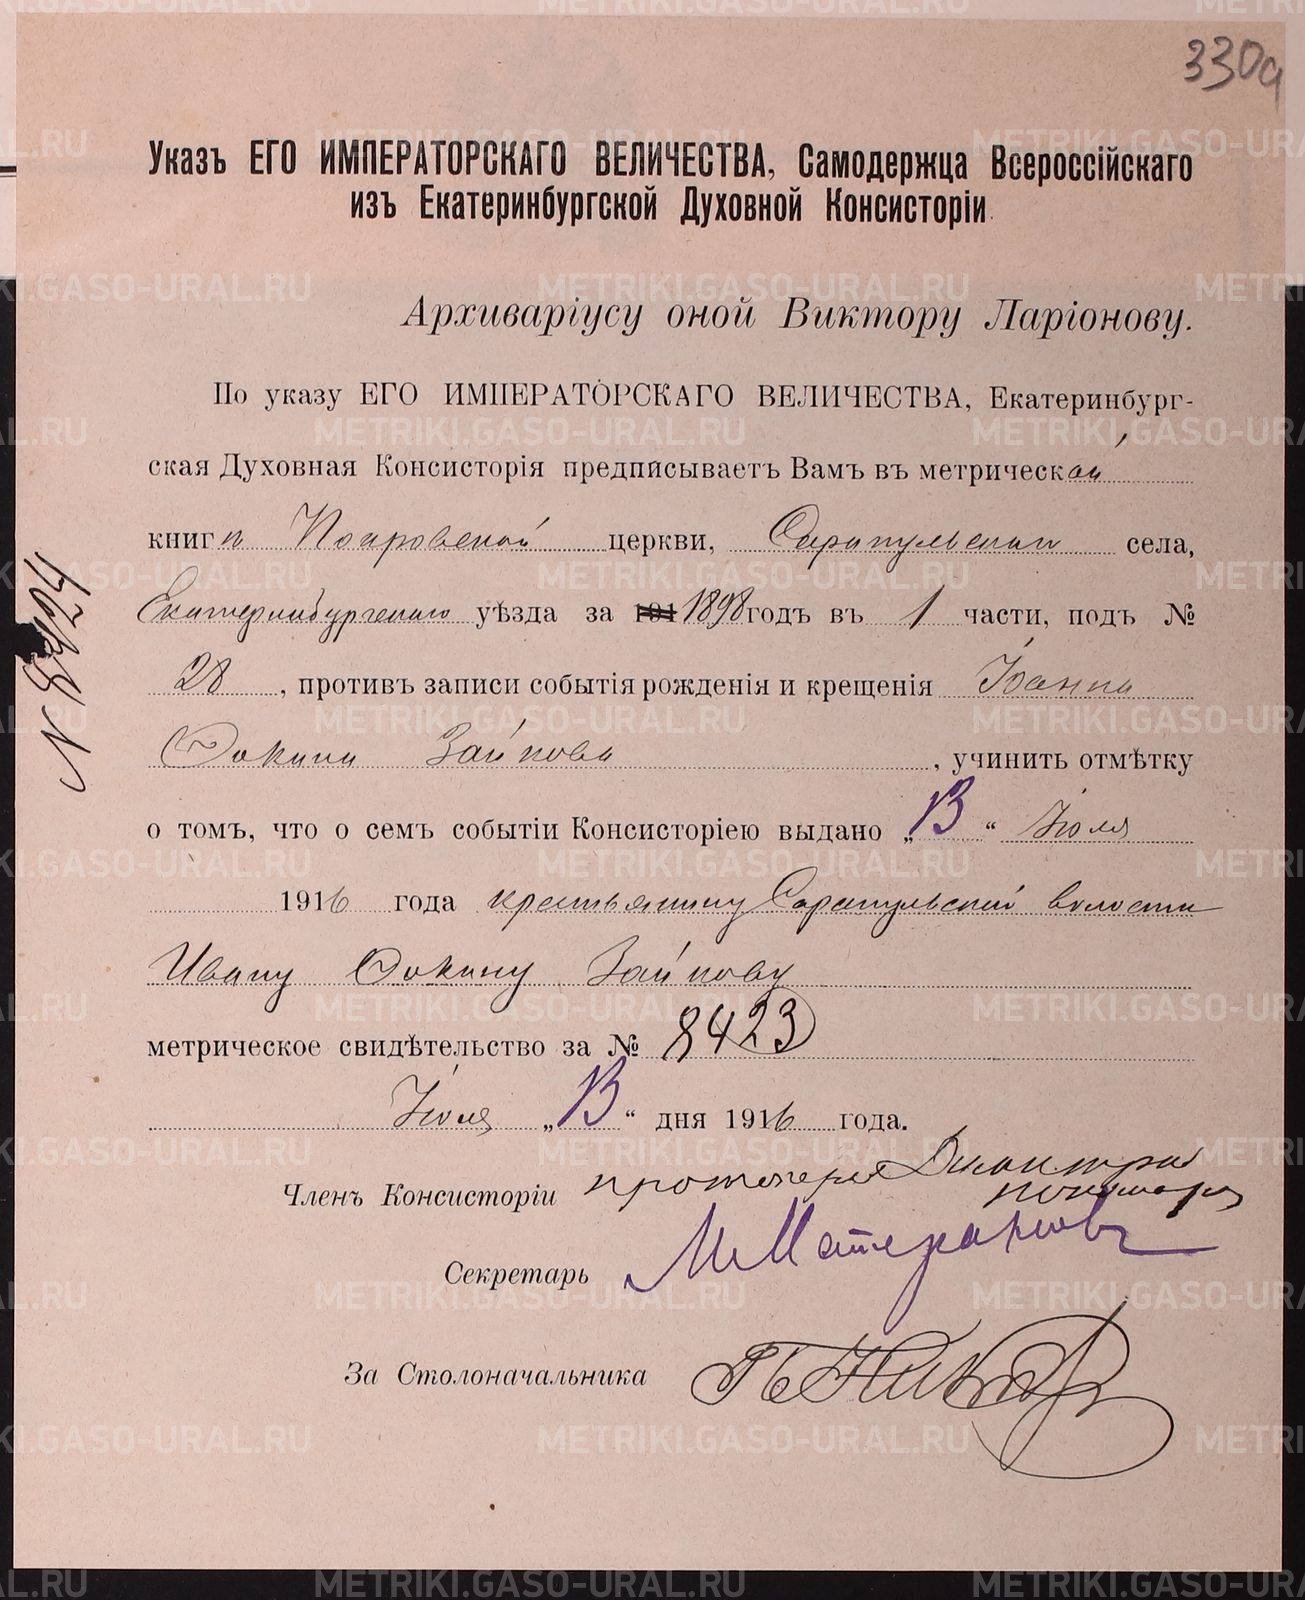 330а
Указъ ЕГО ИМПЕРАТОРСКАГО ВЕЛИЧЕСТВА, Самодержца Всероссійскаго
изъ Екатеринбургской Духовной Консисторіи
Архиваріусу оной Виктору Ларіонову.
По указу ЕГО ИМПЕРАТОРСКАГО ВЕЛИЧЕСТВА, Екатеринбург-
ская Духовная Консисторія предписываетъ Вамъ въ метрической
книгѣ Покровской церкви, Сарапульскаго села,
Екатеринбургскаго уѣзда за 1898 годъ въ 1 части, подъ №
28, противъ записи событія рожденія и крещенія Іоанна
Фокина Зайкова, учинить отмѣтку
о томъ, что о семъ событіи Консисторіею выдано „13“ Іюля
1916 года крестьянину Сарапульской волости
Ивану Фокину Зайкову
метрическое свидѣтельство за № 8423
Іюля „13“ дня 1916 года.
N 8424
Членъ Консисторіи протоіерей Димитрій
Секретарь М Матерановъ
За Столоначальника
METRIKI.GASO-URAL.RU